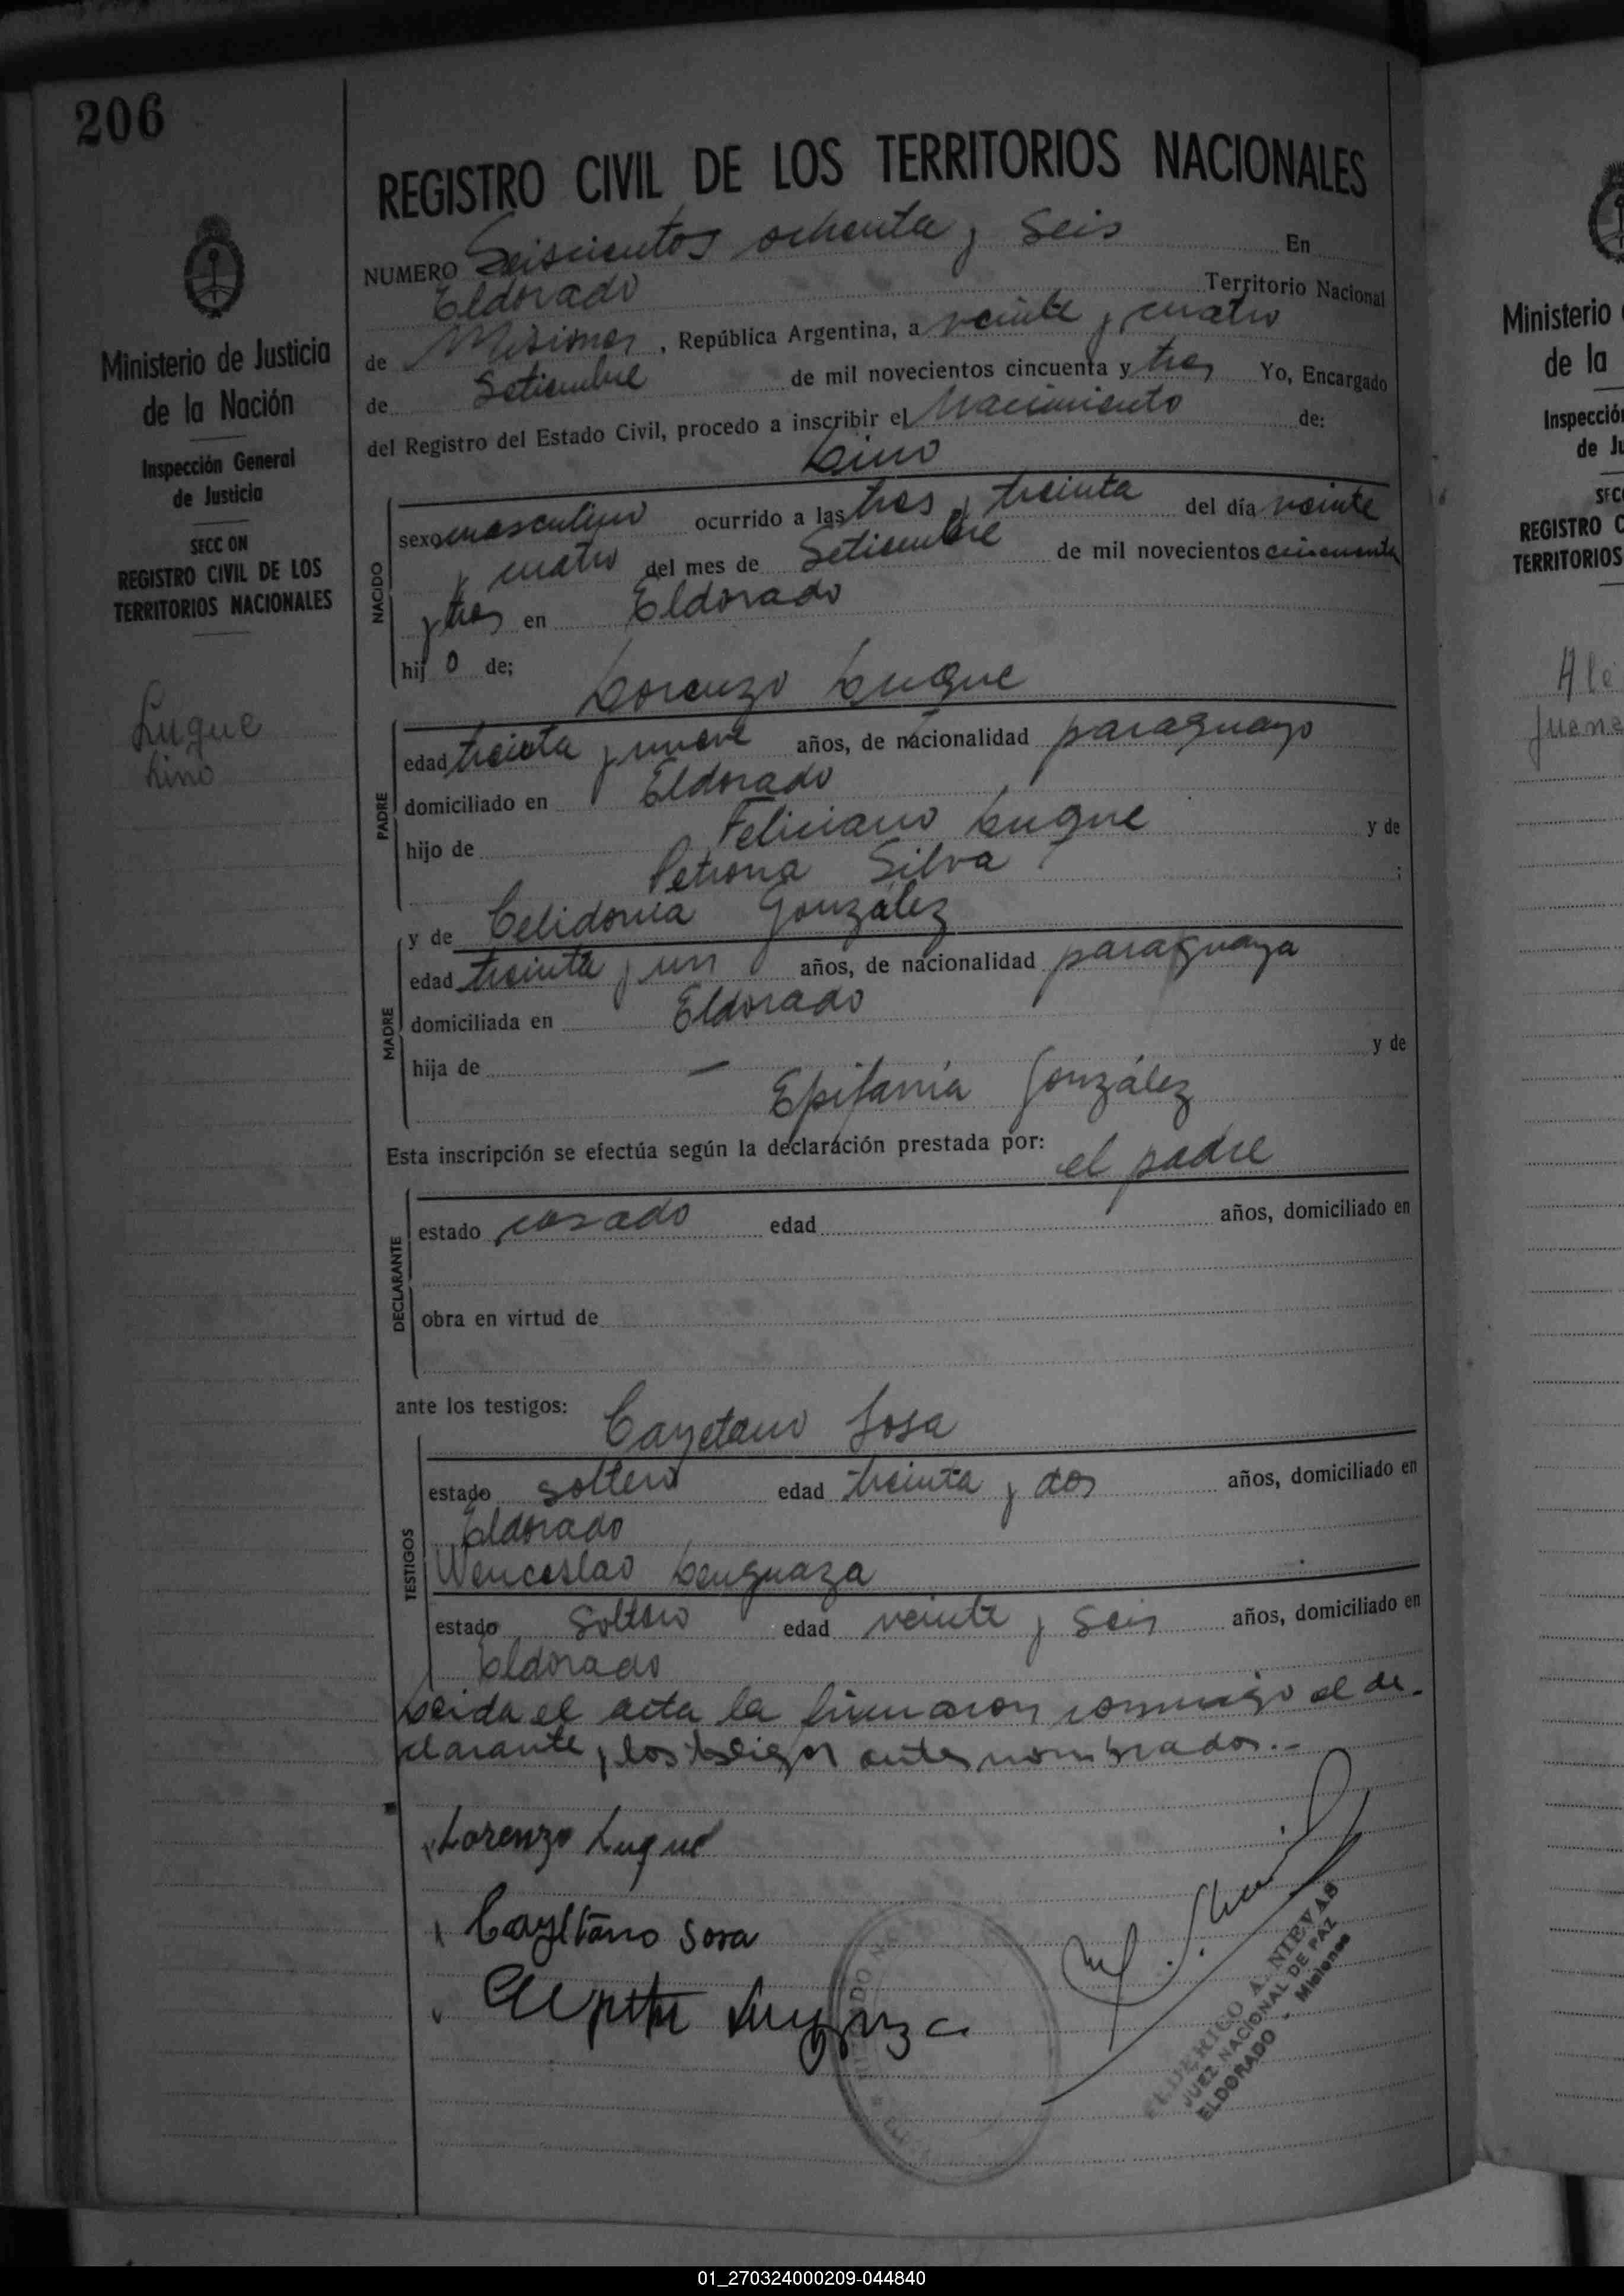 206
REGISTRO CIVIL DE LOS TERRITORIOS NACIONALES
NUMERO Seiscientos ochenta y seis En
Eldorado Territorio Nacional
de Misiones, República Argentina, a veinte y cuatro
de Setiembre de mil novecientos cincuenta y tres Yo, Encargado
del Registro del Estado Civil, procedo a inscribir el Nacimiento de:
Lino
NACIDO
sexo masculino ocurrido a las tres y treinta del día veinte
y cuatro del mes de Setiembre de mil novecientos cincuenta
y tres en Eldorado
hijo de; Lorenzo Luque
PADRE
edad treinta y nueve años, de nacionalidad paraguayo
domiciliado en Eldorado
hijo de Feliciano Luque y de
Petrona Silva ;
y de Celidonia González
MADRE
edad treinta y un años, de nacionalidad paraguaya
domiciliada en Eldorado
hija de — y de
Epifania González
Esta inscripción se efectúa según la declaración prestada por: el padre
DECLARANTE
estado casado edad años, domiciliado en
obra en virtud de
ante los testigos: Cayetano Sosa
TESTIGOS
estado soltero edad treinta y dos años, domiciliado en
Eldorado
Wenceslao Lenguaza
estado soltero edad veinte y seis años, domiciliado en
Eldorado
Leida el acta la firmaron conmigo el de-
clarante y los testigos antes nombrados.-
Lorenzo Luque
Cayetano Sosa
FEDERICO A. NIEVAS
JUEZ NACIONAL DE PAZ
ELDORADO - Misiones
Ministerio de Justicia
de la Nación
Inspección General
de Justicia
SECC ON
REGISTRO CIVIL DE LOS
TERRITORIOS NACIONALES
Luque
Lino
Ministerio
de la
Inspección
de Ju
SECC
REGISTRO C
TERRITORIOS
Ale
01_270324000209-044840